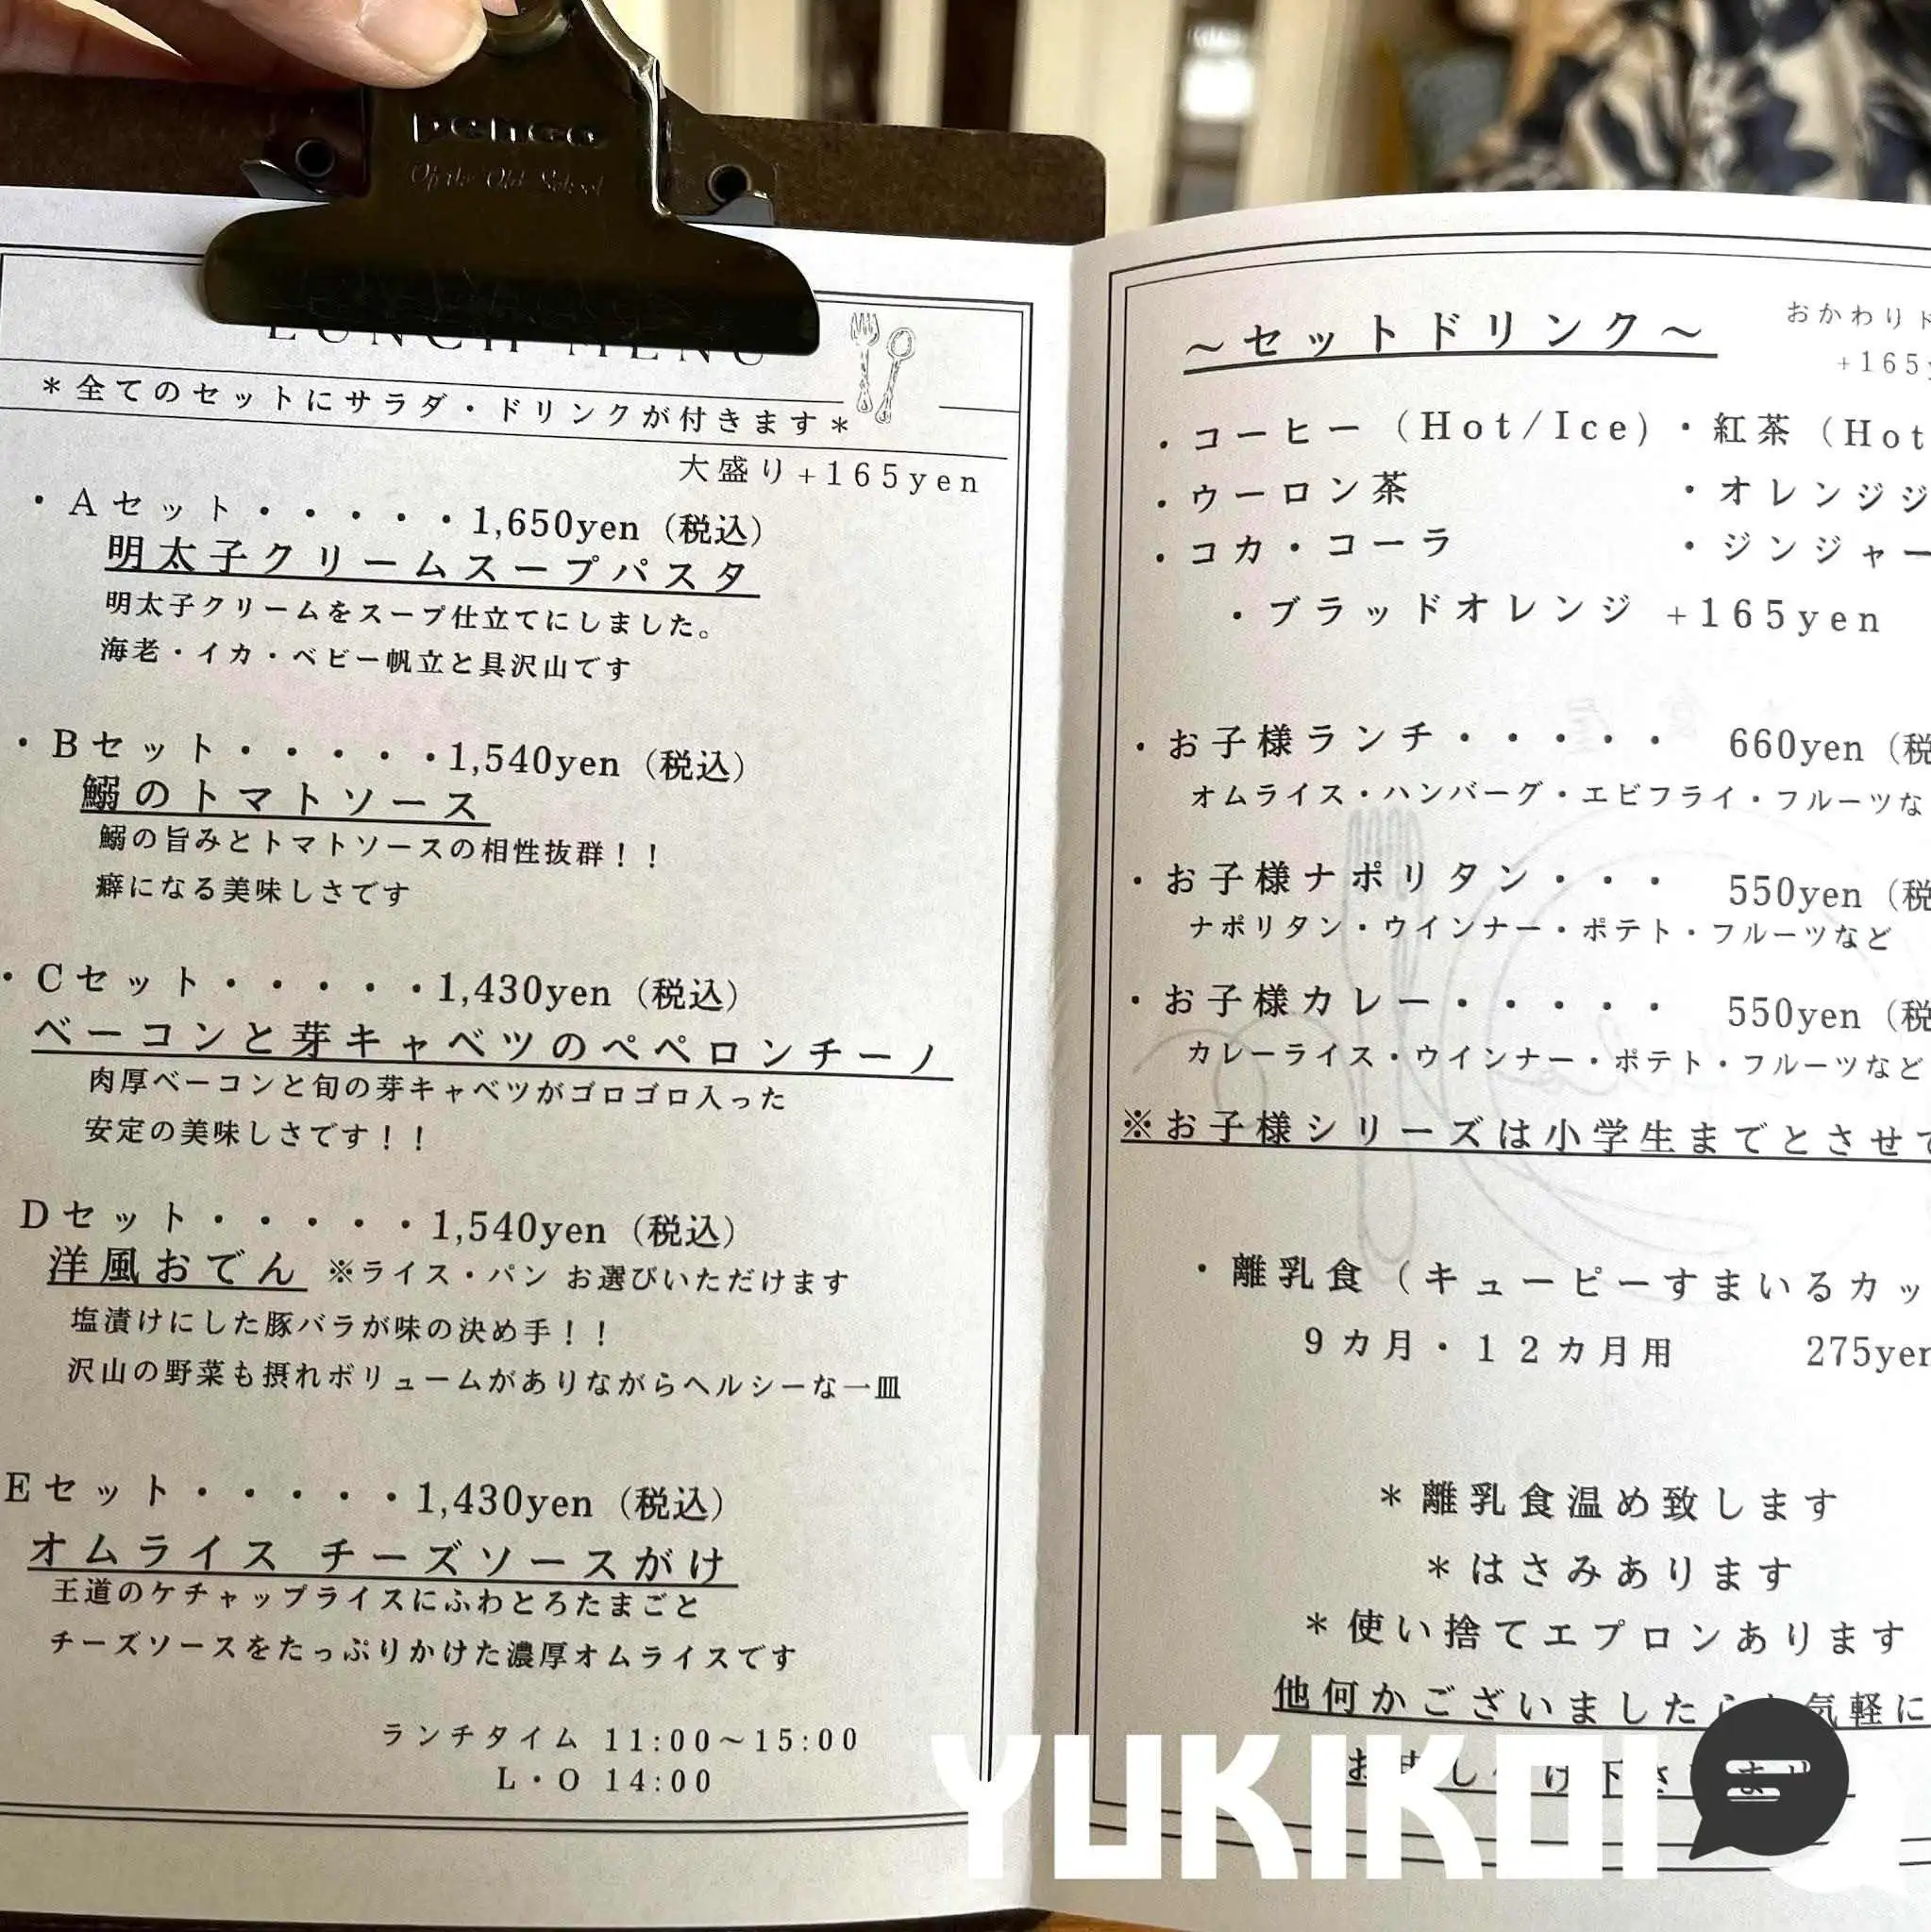 penco
Of the Old School
LUNCH MENU
＊全てのセットにサラダ・ドリンクが付きます＊
大盛り+165yen
・Aセット・・・・・1,650yen（税込）
明太子クリームスープパスタ
明太子クリームをスープ仕立てにしました。
海老・イカ・ベビー帆立と具沢山です
・Bセット・・・・・1,540yen（税込）
鰯のトマトソース
鰯の旨みとトマトソースの相性抜群！！
癖になる美味しさです
・Cセット・・・・・1,430yen（税込）
ベーコンと芽キャベツのペペロンチーノ
肉厚ベーコンと旬の芽キャベツがゴロゴロ入った
安定の美味しさです！！
Dセット・・・・・1,540yen（税込）
洋風おでん ※ライス・パン お選びいただけます
塩漬けにした豚バラが味の決め手！！
沢山の野菜も摂れボリュームがありながらヘルシーな一皿
Eセット・・・・・1,430yen（税込）
オムライス チーズソースがけ
王道のケチャップライスにふわとろたまごと
チーズソースをたっぷりかけた濃厚オムライスです
ランチタイム 11:00～15:00
L・O 14:00
～セットドリンク～
おかわり
+165
・コーヒー（Hot/Ice）・紅茶（Hot
・ウーロン茶 ・オレンジジ
・コカ・コーラ ・ジンジャー
・ブラッドオレンジ +165yen
・お子様ランチ・・・・・ 660yen（税
オムライス・ハンバーグ・エビフライ・フルーツな
・お子様ナポリタン・・・ 550yen（税
ナポリタン・ウインナー・ポテト・フルーツなど
・お子様カレー・・・・・ 550yen（税
カレーライス・ウインナー・ポテト・フルーツなど
※お子様シリーズは小学生までとさせて
・離乳食（キューピーすまいるカッ
9カ月・12カ月用 275yen
＊離乳食温め致します
＊はさみあります
＊使い捨てエプロンあります
他何かございましたら 気軽に
YUKIKOI